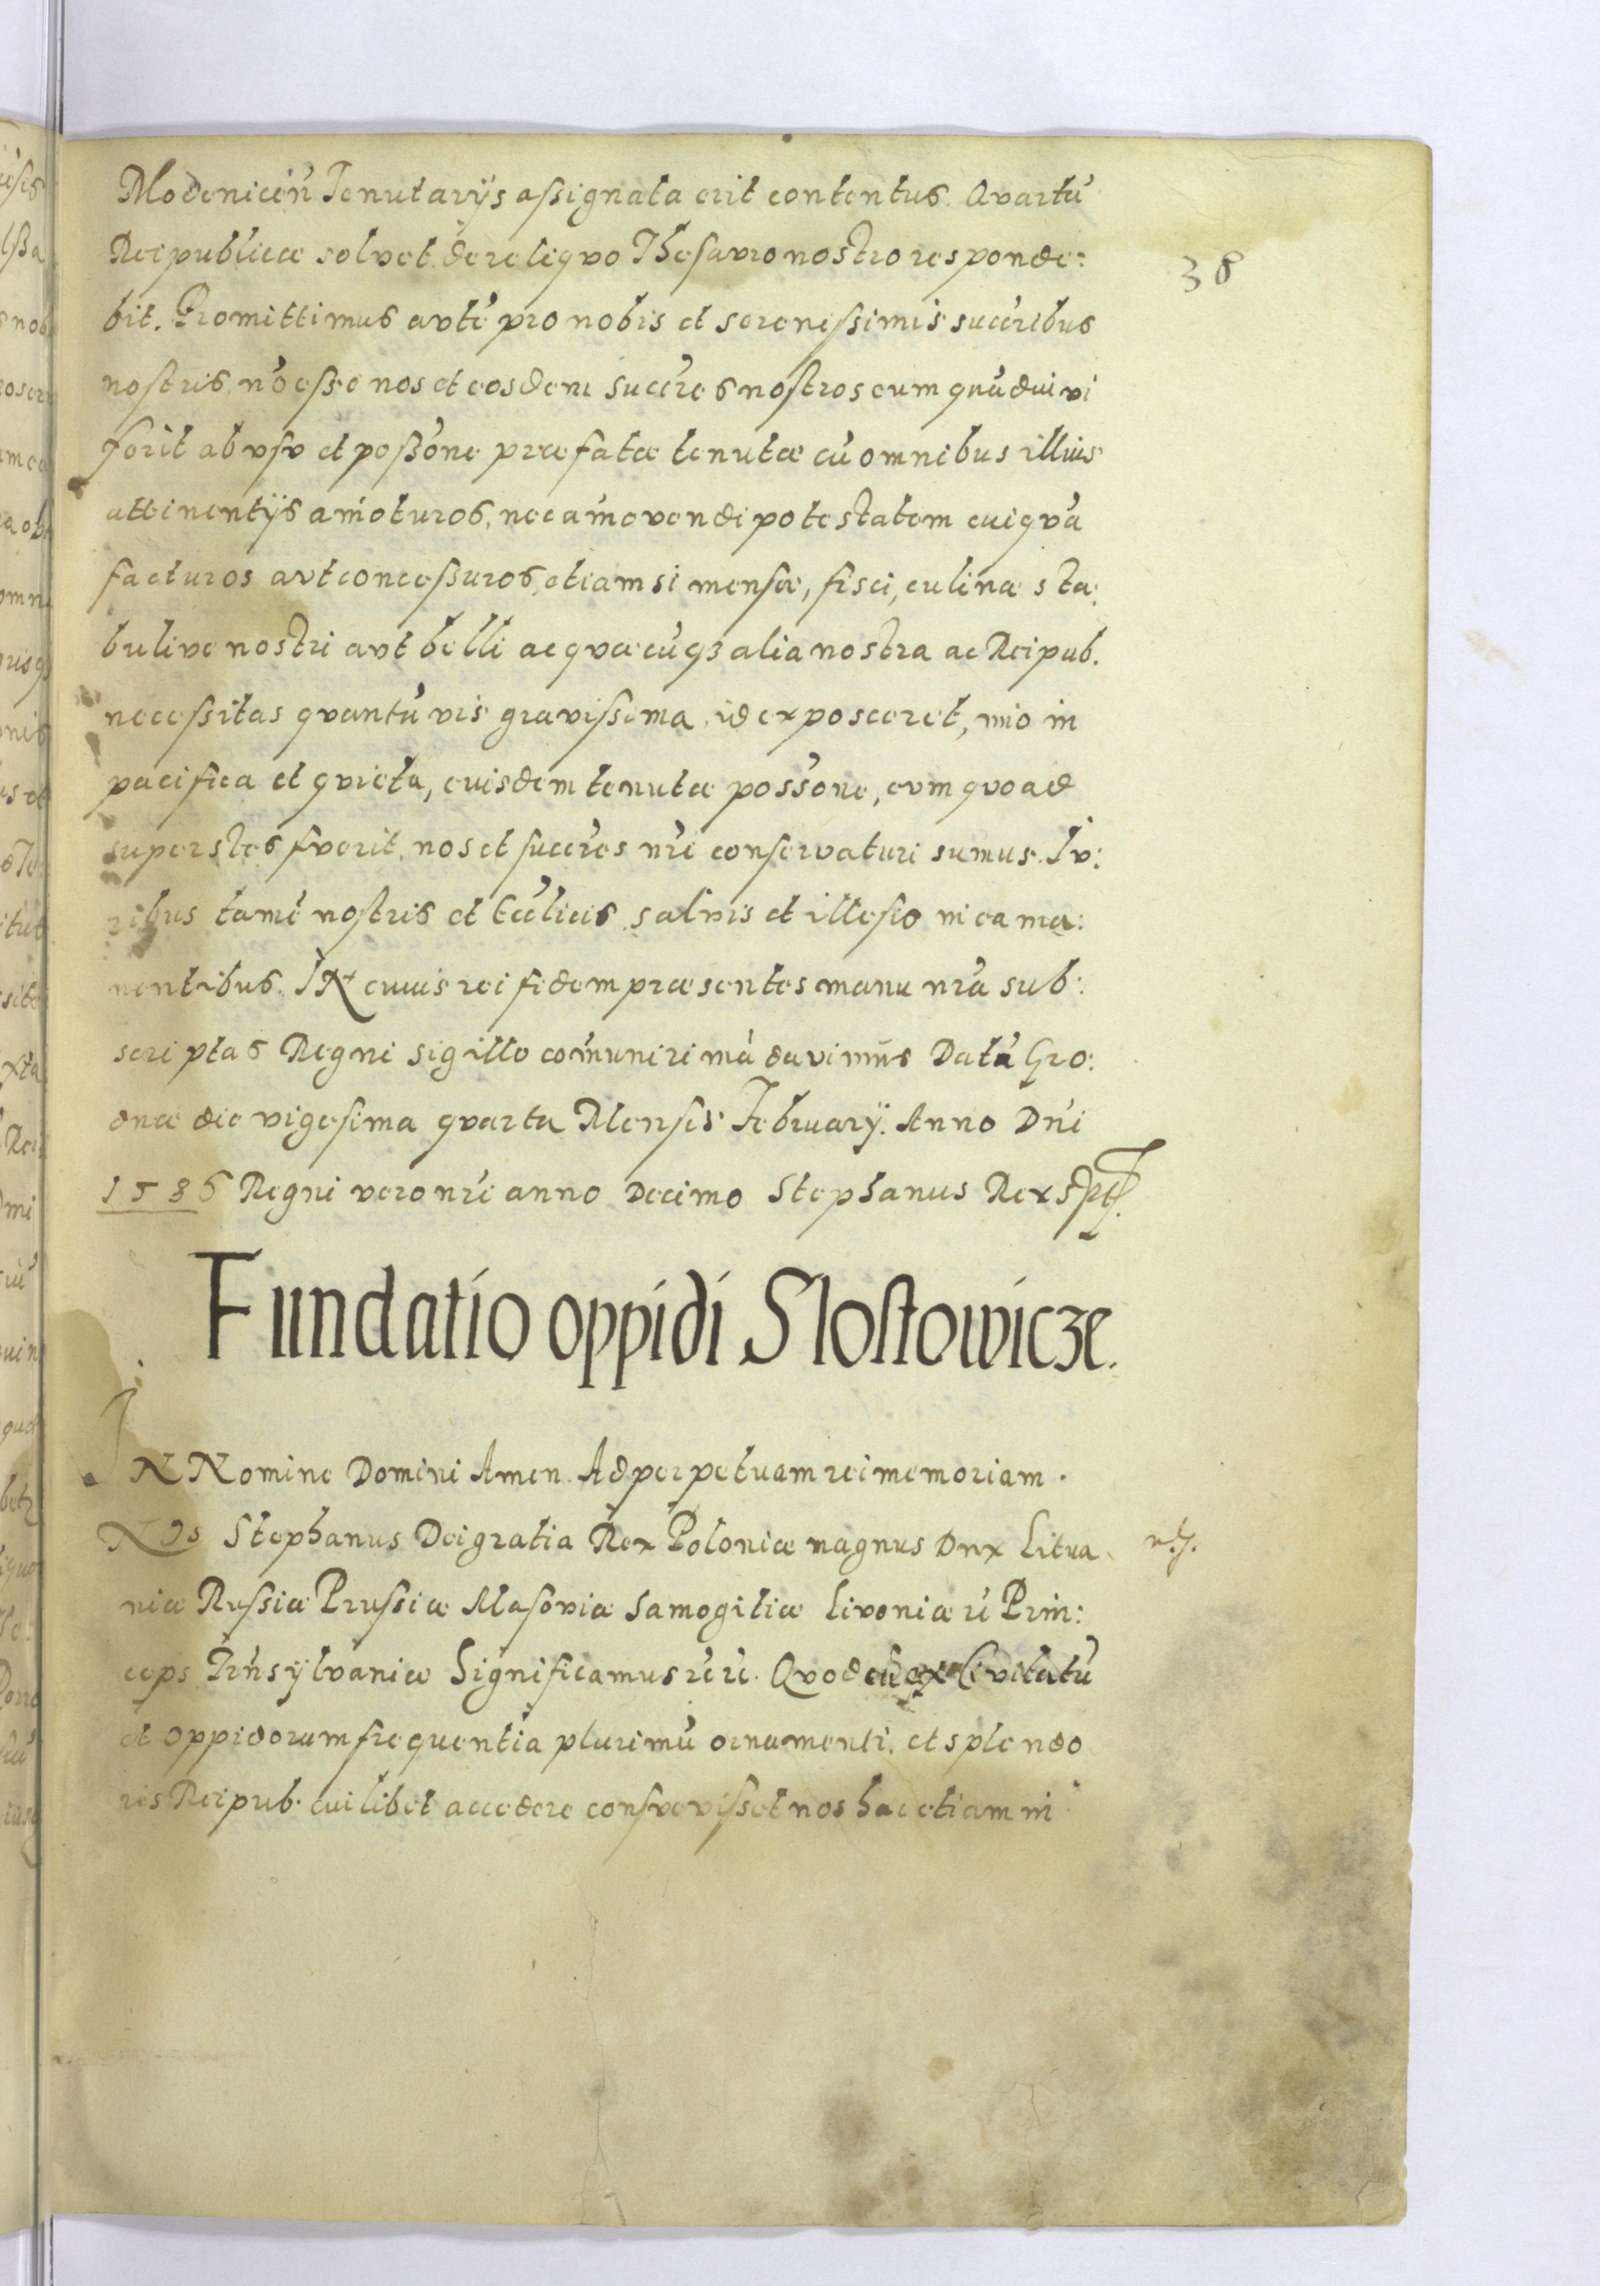 Modernioru Tenutarijs assignata erit contentus. Qvartu
Reipublicæ solvet de reliqvo Thesavro nostro responde:
38
bit. Promittimus avte pro nobis et serenissimis succribus
nostris, no esse nos et eosdem succres nostros eum quadiu vi
xerit ab vsv et possone præfatæ tenutæ cu omnibus illius
attinentijs amoturos, nec amovendi potestatem cuiqva
facturos avt concessuros, etiamsi mensæ, fisci, culinæ sta:
bulive nostri avt belli ac qvæcuqз alia nostra ac Reipub.
necessitas qvantu vis gravissima id exposceret, imo in
pacifica et qvieta, eiusdem tenutæ possone, evm qvoad
superstes fverit, nos et succres nri conservaturi sumus. Iv:
ribus tame nostris et Ecclicis salvis et illesis in ea ma:
nentibus. IN cuius rei fidem præsentes manu nra sub:
scriptas Regni sigillo comuniri madavimus Datu Gro:
dnæ die vigesima qvarta Mensis February. Anno Dni
1586 Regni vero nri anno Decimo Stephanus Rex
Fundatio oppidi Slostowicze.
IN Nomine Domini Amen. Ad perpetvam rei memoriam.
NOs Stephanus Dei gratia Rex Poloniæ magnus Dux Litva
niæ Russiæ Prussiæ Masoviæ Samogitiæ Livoniæ Prin:
ceps Trnsylvaniæ Significamus Qvod cu ex Civitatu
et oppidorum frequentia plurimu ornamenti, et splendo
ris Reipub. cuilibet accedere consvevisset nos hac etiam in